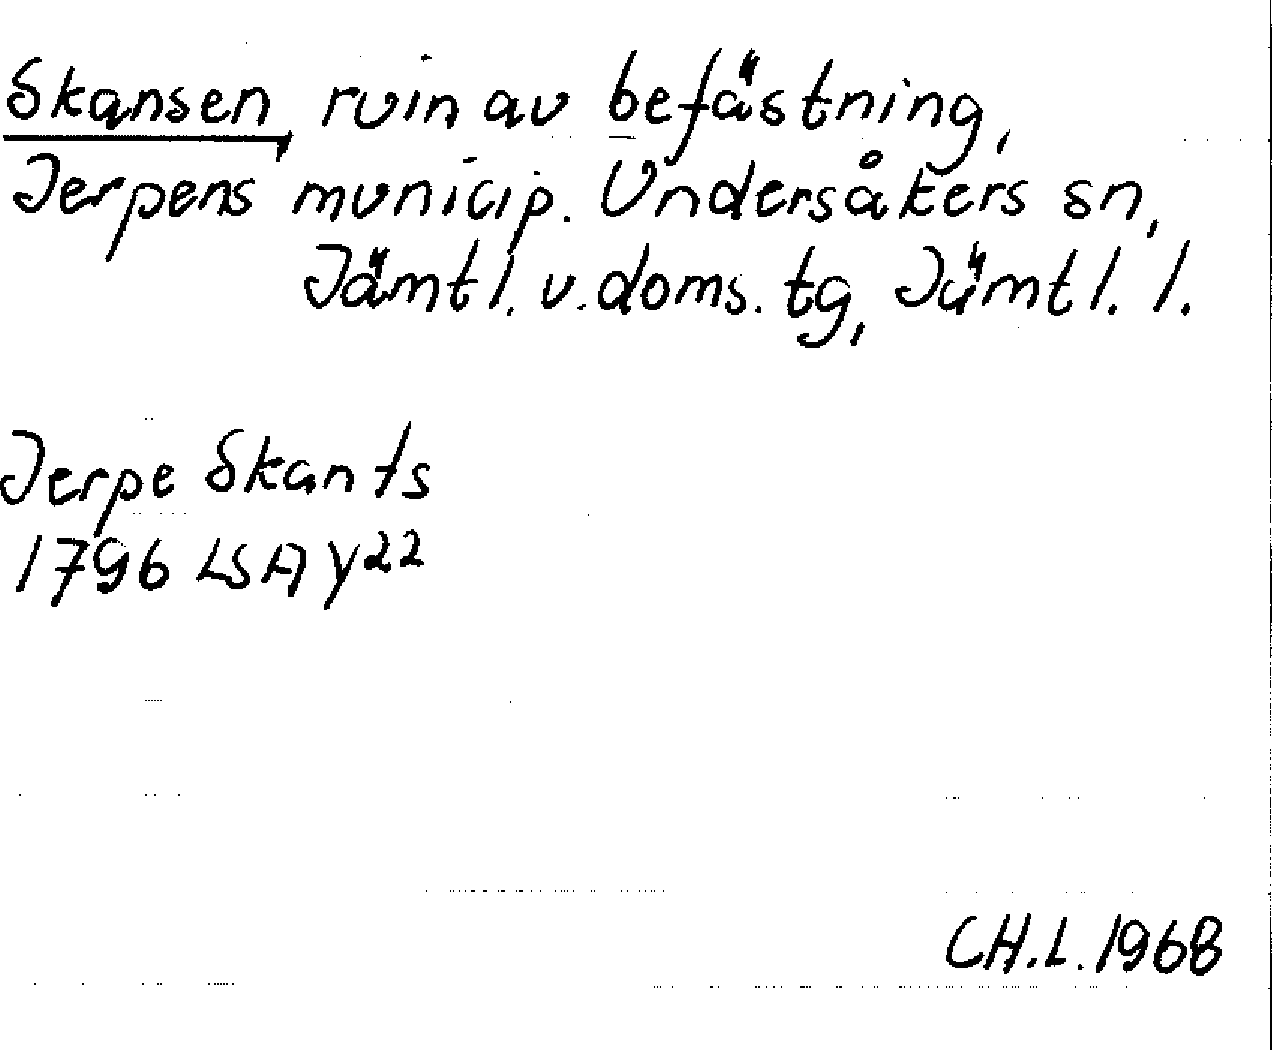 Skansen, ruin av befästning,
Jerpens municip. Undersåkers sn,
Jämtl. v. doms. tg, Jämtl. l.
Jerpe Skants
1796 LSA Y22
CH.L. 1968